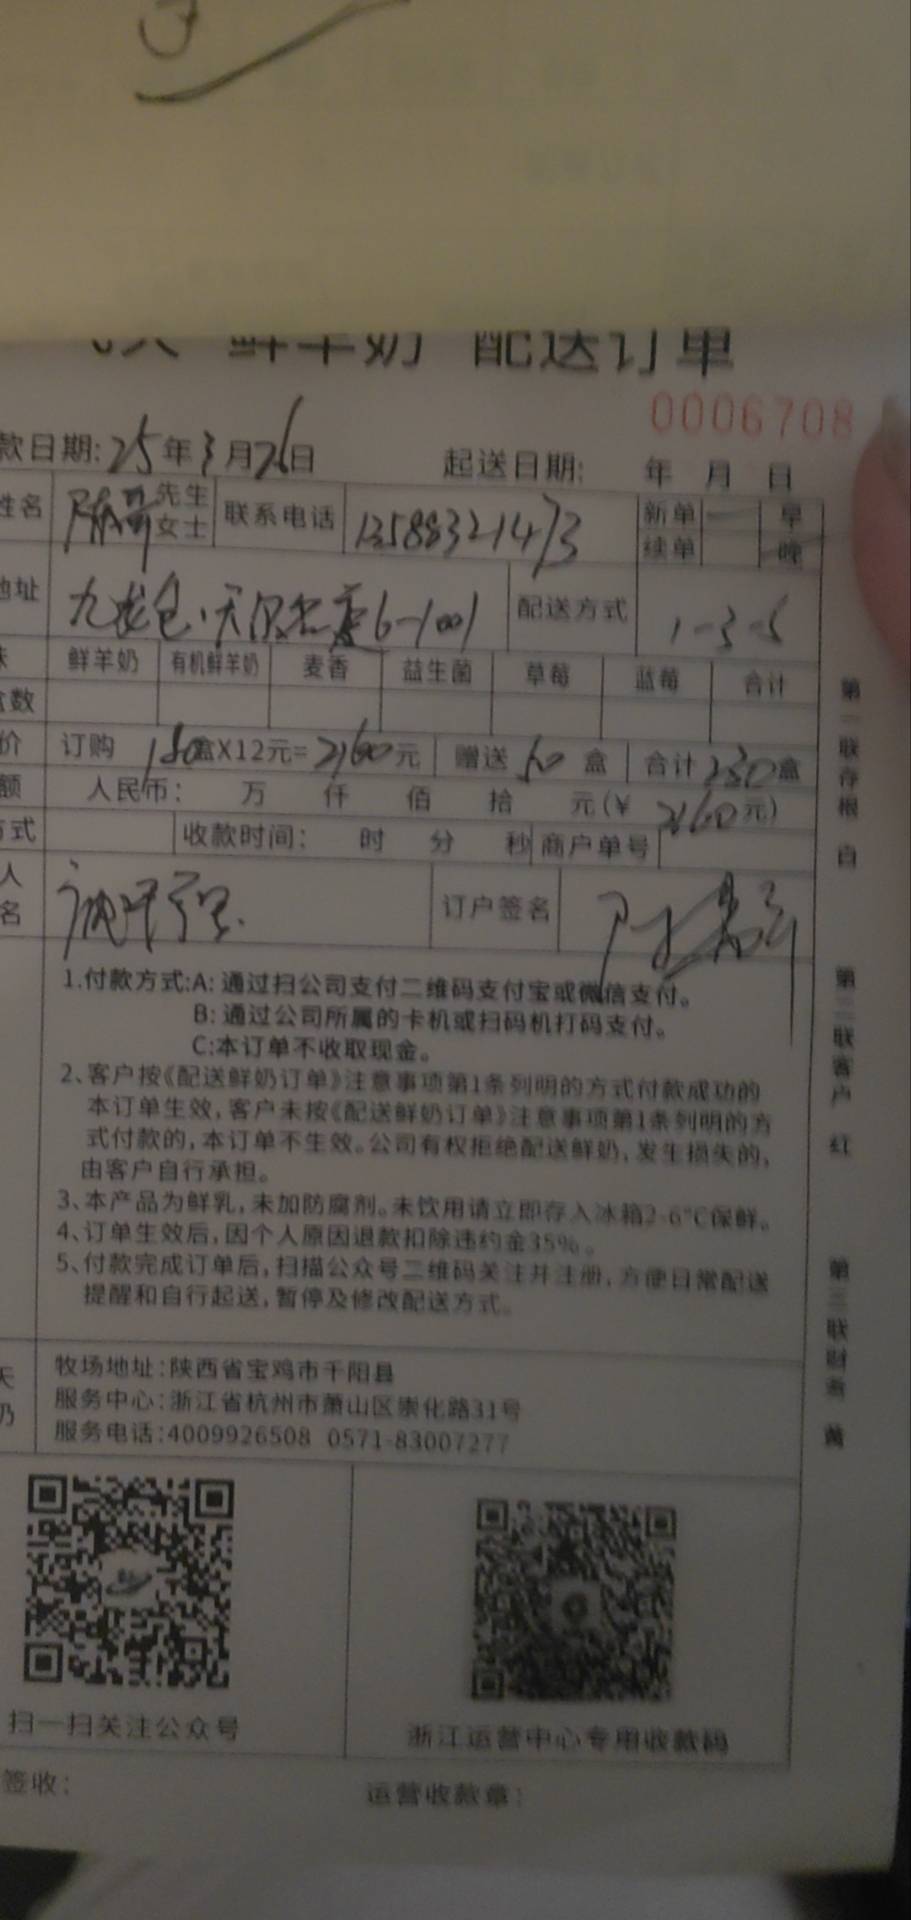 鲜羊奶 配送订单
0006708
款日期: 25年3月26日 起送日期: 年 月 日
姓名 先生 女士 联系电话 13588321473 新单 早
续单 晚
地址 6-1001 配送方式 1-3-5
鲜羊奶 有机鲜羊奶 麦香 益生菌 草莓 蓝莓 合计
盒数
价 订购 180盒X12元=2160元 赠送 50 盒 合计 230盒
额 人民币: 万 仟 佰 拾 元(¥ 2160元)
方式 收款时间: 时 分 秒 商户单号
人名 订户签名
1.付款方式:A: 通过扫公司支付二维码支付宝或微信支付。
B: 通过公司所属的卡机或扫码机打码支付。
C:本订单不收取现金。
2、客户按《配送鲜奶订单》注意事项第1条列明的方式付款成功的
本订单生效,客户未按《配送鲜奶订单》注意事项第1条列明的方
式付款的,本订单不生效。公司有权拒绝配送鲜奶,发生损失的,
由客户自行承担。
3、本产品为鲜乳,未加防腐剂。未饮用请立即存入冰箱2-6°C保鲜。
4、订单生效后,因个人原因退款扣除违约金35%。
5、付款完成订单后,扫描公众号二维码关注并注册,方便日常配送
提醒和自行起送,暂停及修改配送方式。
牧场地址:陕西省宝鸡市千阳县
服务中心:浙江省杭州市萧山区崇化路31号
服务电话:4009926508 0571-83007277
扫一扫关注公众号
浙江运营中心专用收款码
签收:
运营收款章:
第一联存根 白
第二联客户 红
第三联财务 黄